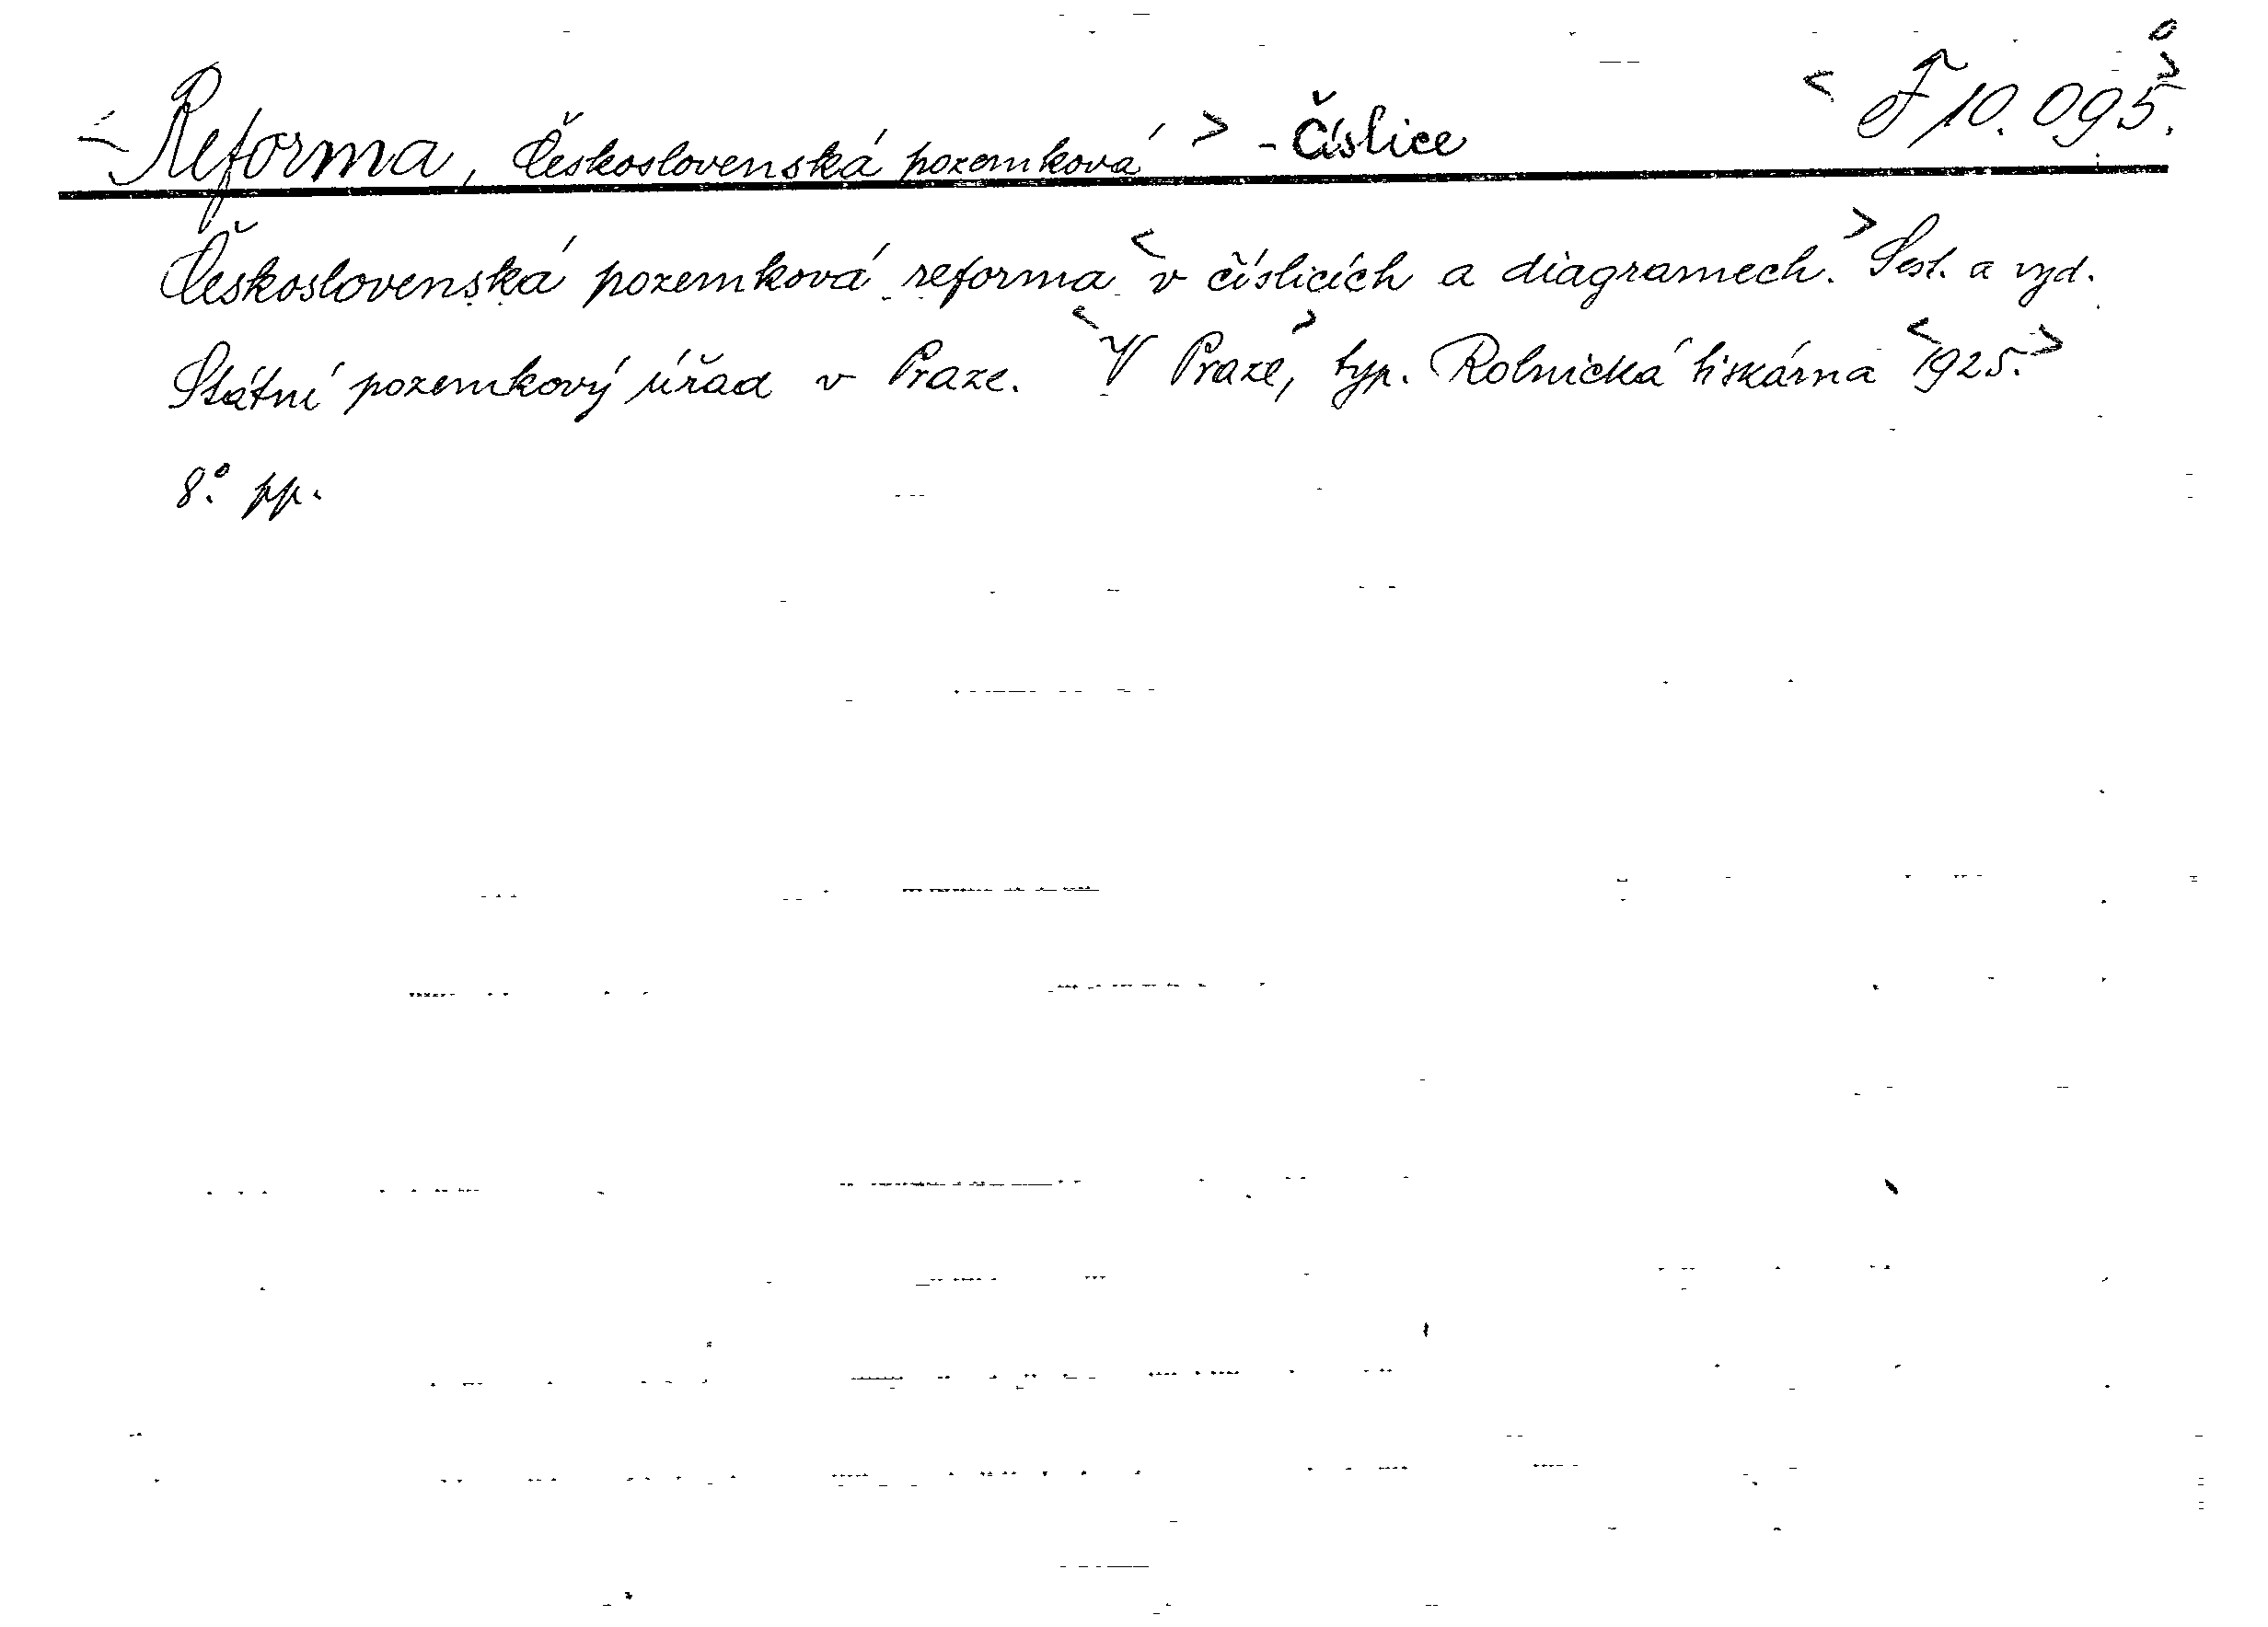 < Reforma, Československá pozemková > - Číslice < F 10.095. >
Československá pozemková reforma < v číslicích a diagramech. > Sest. a vyd.
Státní pozemkový úřad v Praze. < V Praze, > typ. Rolnická tiskárna < 1925. >
8°. pp.